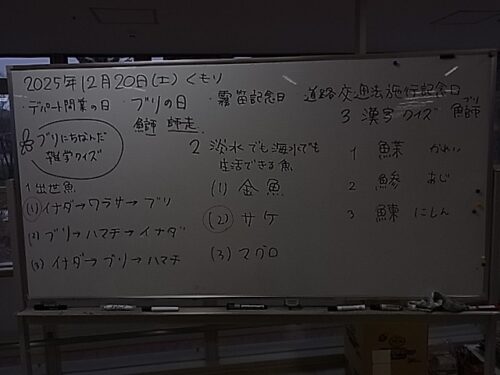 2025年12月20日(土)くもり
・デパート開業の日 ・ブリの日 ・霧笛記念日 道路交通法施行記念日
鰤 師走
ブリにちなんだ
雑学クイズ
1 出世魚
(1) イナダ→ワラサ→ブリ
(2) ブリ→ハマチ→イナダ
(3) イナダ→ブリ→ハマチ
2 淡水でも海水でも
生活できる魚
(1) 金魚
(2) サケ
(3) マグロ
3 漢字クイズ 鰤 ブリ
1 鰈 かれい
2 鯵 あじ
3 鰊 にしん